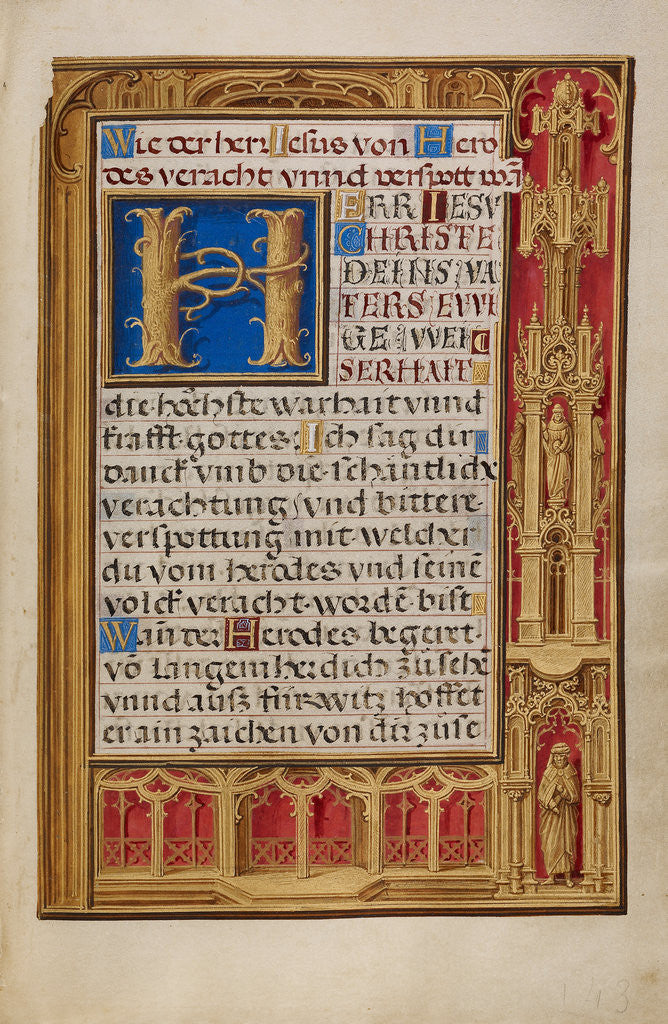 Wie der herr Iesus von Hero
des veracht vnnd verspott wa᷑
HERR IESV
CHRISTE
DEINS VA
TERS EWI
GE WEI
SERHAIT
die höchste warhait vnnd
krafft gottes. Ich sag dir
danck vmb die schäntliche
verachtung, vnd bittere
verspottung mit welcher
du vom herodes vnd seinē
volck veracht wordē bist
Wañ der Herodes begert
vō langem her dich zů sehē
vnnd ausz fürwitz hoffet
er ain zaichen von dir zů se
143